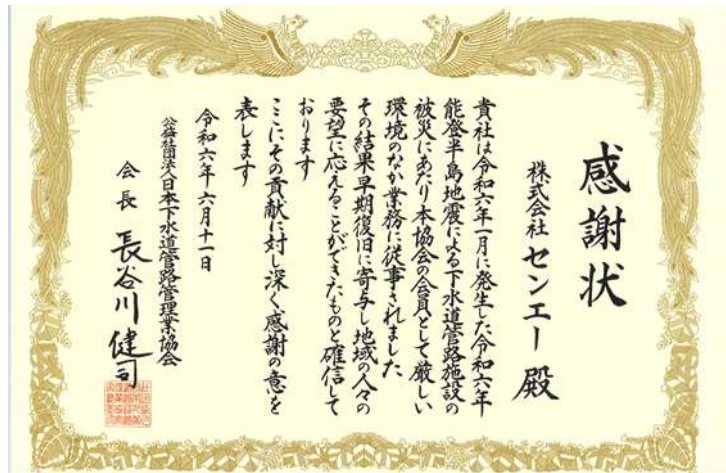 感謝状
株式会社 センエー 殿
貴社は令和六年一月に発生した令和六年
能登半島地震による下水道管路施設の
被災にあたり本協会の会員として厳しい
環境のなか業務に従事されました
その結果早期復旧に寄与し地域の人々の
要望に応えることができたものと確信して
おります
ここにその貢献に対し深く感謝の意を
表します
令和六年六月十一日
公益社団法人日本下水道管路管理業協会
会長 長谷川健司